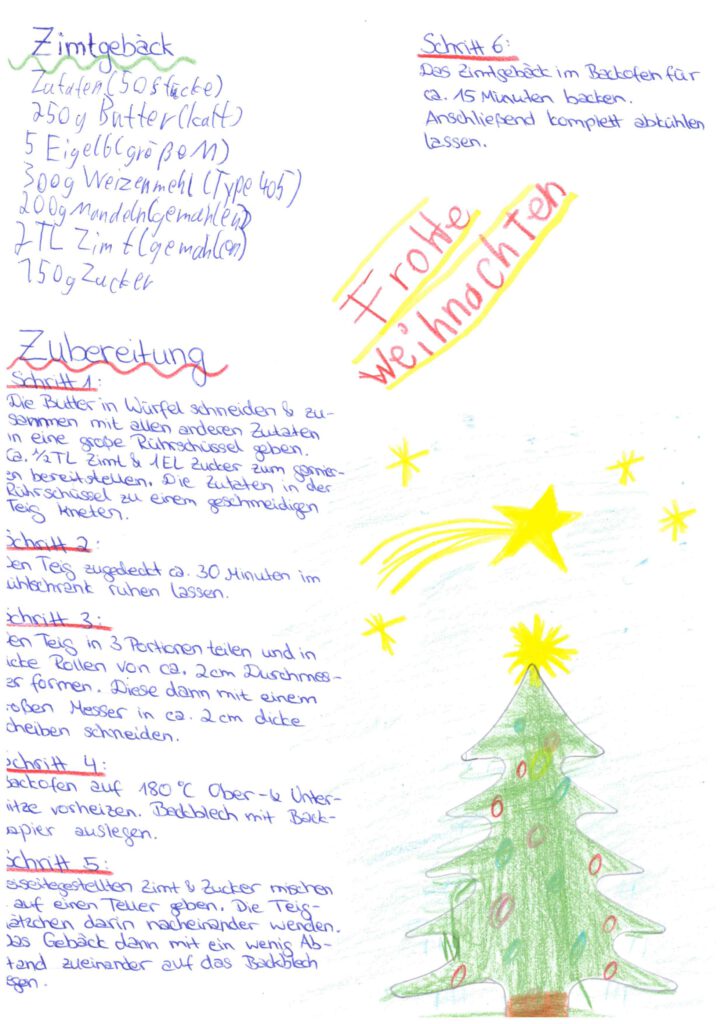 Zimtgebäck
Zutaten (50 stücke)
250g Butter (kalt)
5 Eigelb (größe M)
300g Weizenmehl (Type 405)
200g Mandeln (gemahlen)
2 TL Zimt (gemahlen)
150g Zucker
Zubereitung
Schritt 1:
Die Butter in Würfel schneiden & zu-
sammen mit allen anderen Zutaten
in eine große Rührschüssel geben.
Ca. 1/2 TL Zimt & 1 EL Zucker zum garnier-
en bereitstellen. Die Zutaten in der
Rührschüssel zu einem geschmeidigen
Teig kneten.
Schritt 2:
en Teig zugedeckt ca. 30 Minuten im
ühlschrank ruhen lassen.
Schritt 3:
en Teig in 3 Portionen teilen und in
icke Rollen von ca. 2cm Durchmes-
er formen. Diese dann mit einem
oßen Messer in ca. 2cm dicke
cheiben schneiden.
Schritt 4:
ackofen auf 180°C Ober- & Unter-
itze vorheizen. Backblech mit Back-
apier auslegen.
Schritt 5:
eiseitegestellten Zimt & Zucker mischen
auf einen Teller geben. Die Teig-
ätzchen darin nacheinander wenden.
Das Gebäck dann mit ein wenig Ab-
tand zueinander auf das Backblech
egen.
Schritt 6:
Das Zimtgebäck im Backofen für
ca. 15 Minuten backen.
Anschließend komplett abkühlen
lassen.
Frohe
weihnachten